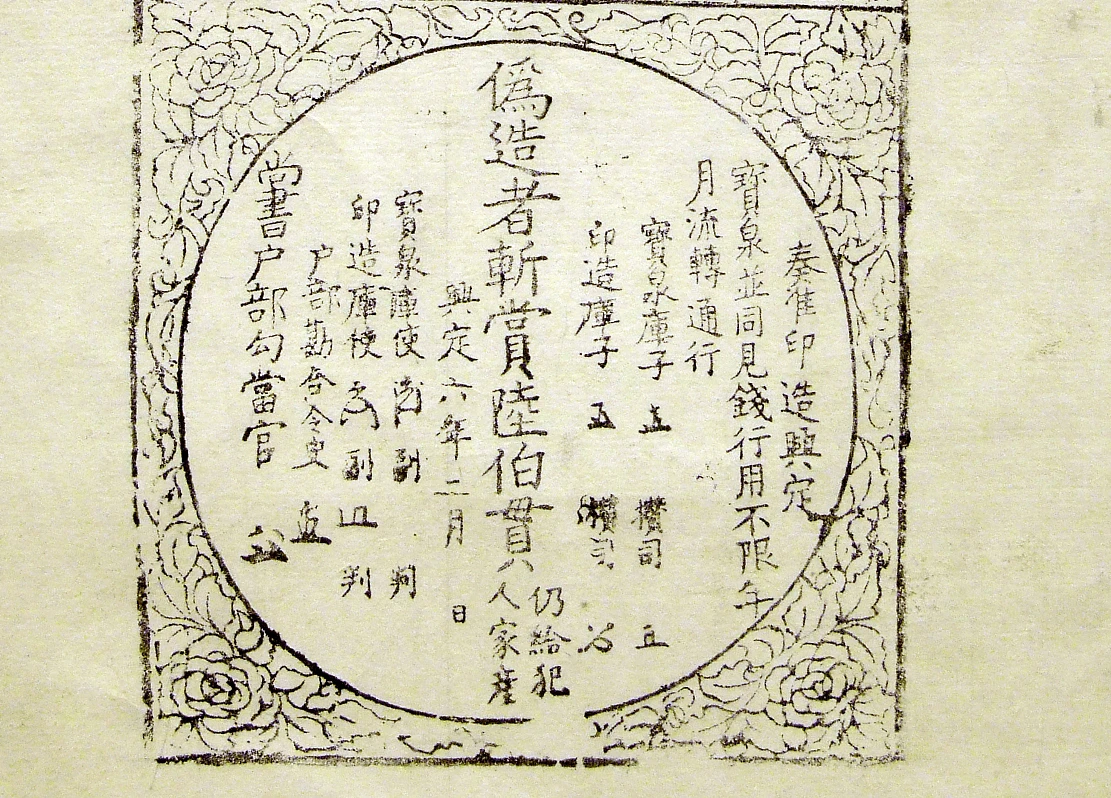 奏准印造興定
寶泉並同見錢行用不限年
月流轉通行
寶泉庫子 攢司
印造庫子 攢司
偽造者斬賞陸伯貫仍給犯
人家產
興定六年二月 日
寶泉庫使 副 判
印造庫使 副 判
户部勘合令史
尚書户部勾當官